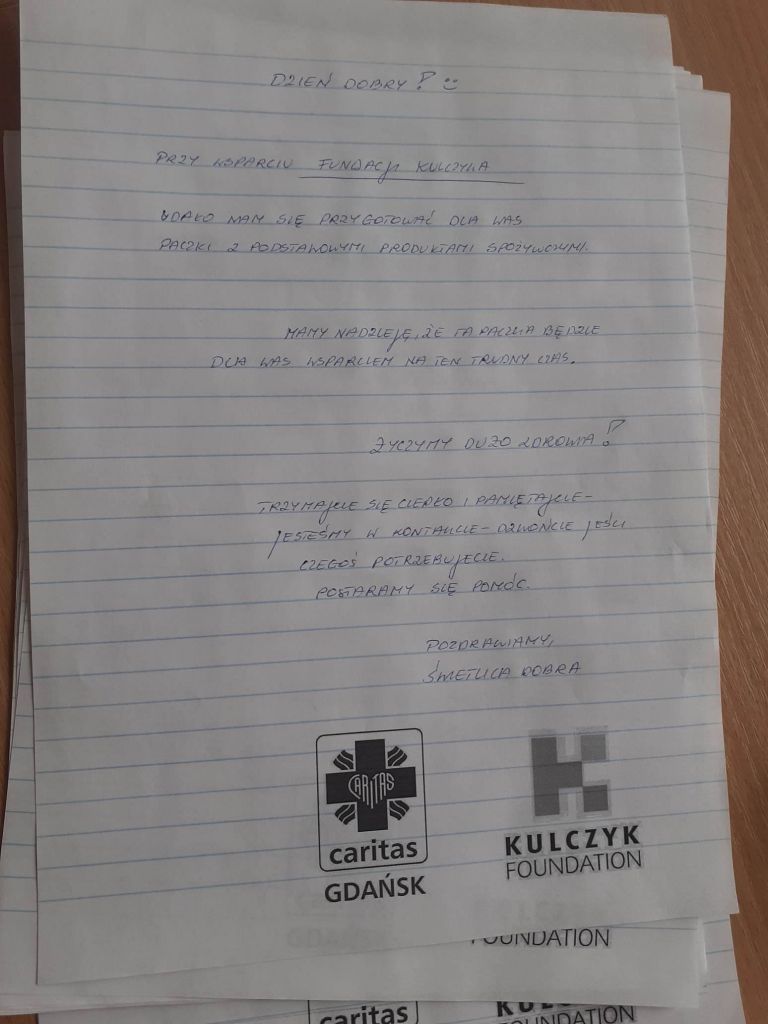 DZIEŃ DOBRY! :)
PRZY WSPARCIU FUNDACJI KULCZYKA
UDAŁO NAM SIĘ PRZYGOTOWAĆ DLA WAS
PACZKI Z PODSTAWOWYMI PRODUKTAMI SPOŻYWCZYMI.
MAMY NADZIEJĘ, ŻE TA PACZKA BĘDZIE
DLA WAS WSPARCIEM NA TEN TRUDNY CZAS.
ŻYCZYMY DUŻO ZDROWIA!
TRZYMAJCIE SIĘ CIEPŁO I PAMIĘTAJCIE-
JESTEŚMY W KONTAKCIE - DZWOŃCIE JEŚLI
CZEGOŚ POTRZEBUJECIE.
POSTARAMY SIĘ POMÓC.
POZDRAWIAMY,
ŚWIETLICA DOBRA
CARITAS
caritas
GDAŃSK
KULCZYK
FOUNDATION
FOUNDATION
caritas
FOUNDATION